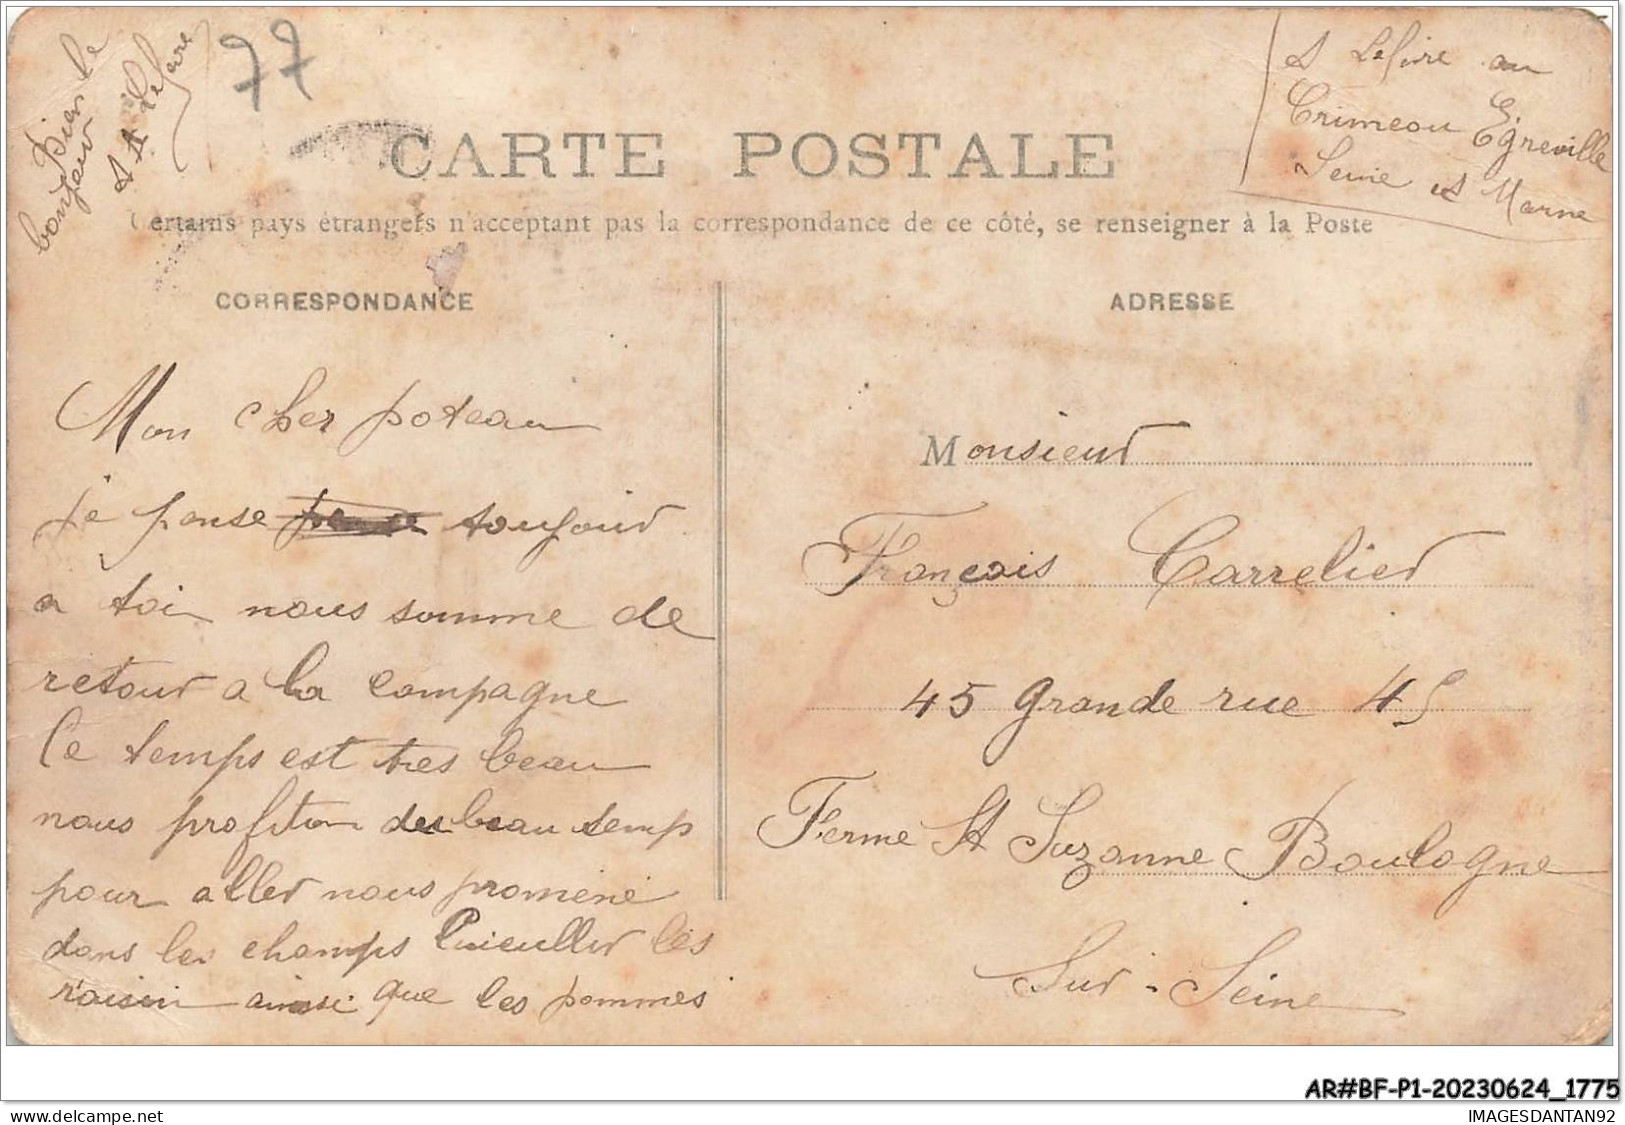 bien le
bonjour
A A Lefevre
77
A Lefevre au
Crimeau Egreville
Seine et Marne
CARTE POSTALE
Certains pays étrangers n'acceptant pas la correspondance de ce côté, se renseigner à la Poste
CORRESPONDANCE
Mon cher poteau
je pense toujour
a toi nous somme de
retour a la campagne
le temps est tres beau
nous profiton du beau temp
pour aller nous promené
dans les champs cuieullir les
raisin ainsi que les pommes
ADRESSE
Monsieur
François Carrelier
45 grande rue 45
Ferme St Suzanne Boulogne
Sur-Seine
AR#BF-P1-20230624_1775
delcampe.net
IMAGESDANTAN92